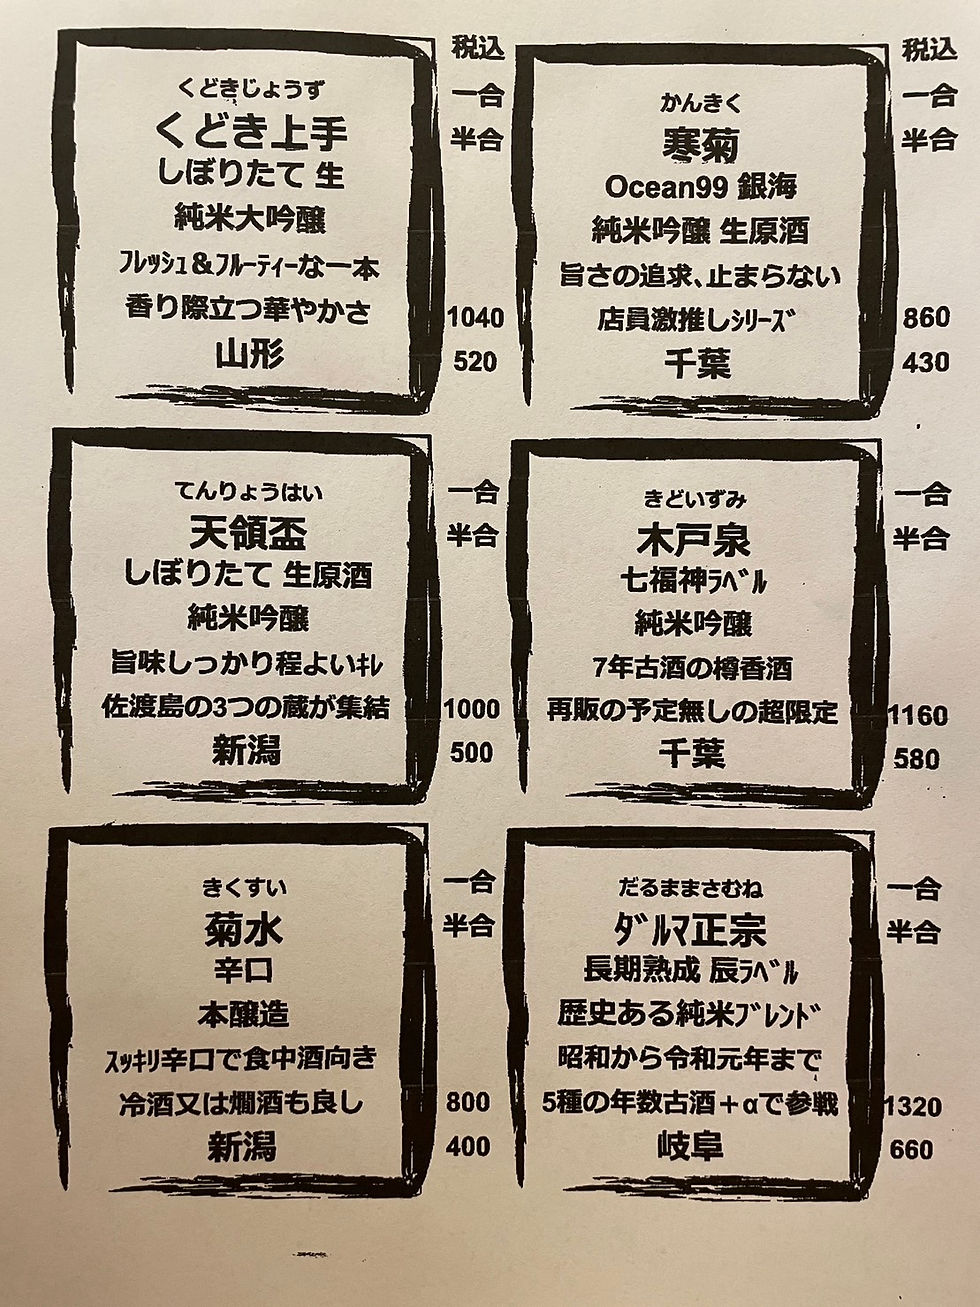 税込
くどきじょうず
くどき上手
しぼりたて 生
純米大吟醸
ﾌﾚｯｼｭ&ﾌﾙｰﾃｨｰな一本
香り際立つ華やかさ
山形
一合
半合
1040
520
税込
かんきく
寒菊
Ocean99 銀海
純米吟醸 生原酒
旨さの追求、止まらない
店員激推しｼﾘｰｽﾞ
千葉
一合
半合
860
430
てんりょうはい
天領盃
しぼりたて 生原酒
純米吟醸
旨味しっかり程よいｷﾚ
佐渡島の3つの蔵が集結
新潟
一合
半合
1000
500
きどいずみ
木戸泉
七福神ﾗﾍﾞﾙ
純米吟醸
7年古酒の樽香酒
再販の予定無しの超限定
千葉
一合
半合
1160
580
きくすい
菊水
辛口
本醸造
ｽｯｷﾘ辛口で食中酒向き
冷酒又は燗酒も良し
新潟
一合
半合
800
400
だるままさむね
ﾀﾞﾙﾏ正宗
長期熟成 辰ﾗﾍﾞﾙ
歴史ある純米ﾌﾞﾚﾝﾄﾞ
昭和から令和元年まで
5種の年数古酒＋αで参戦
岐阜
一合
半合
1320
660